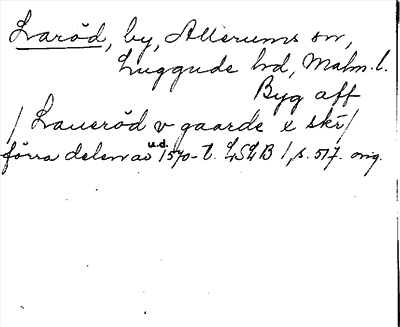 Laröd, by, Allerums sn,
Luggude hd, Malm. l.
Byg aff
/ Laueröd v gaarde x skr /
u.d.
förra delen av 1570-t. LSLB 1, s. 517. orig.